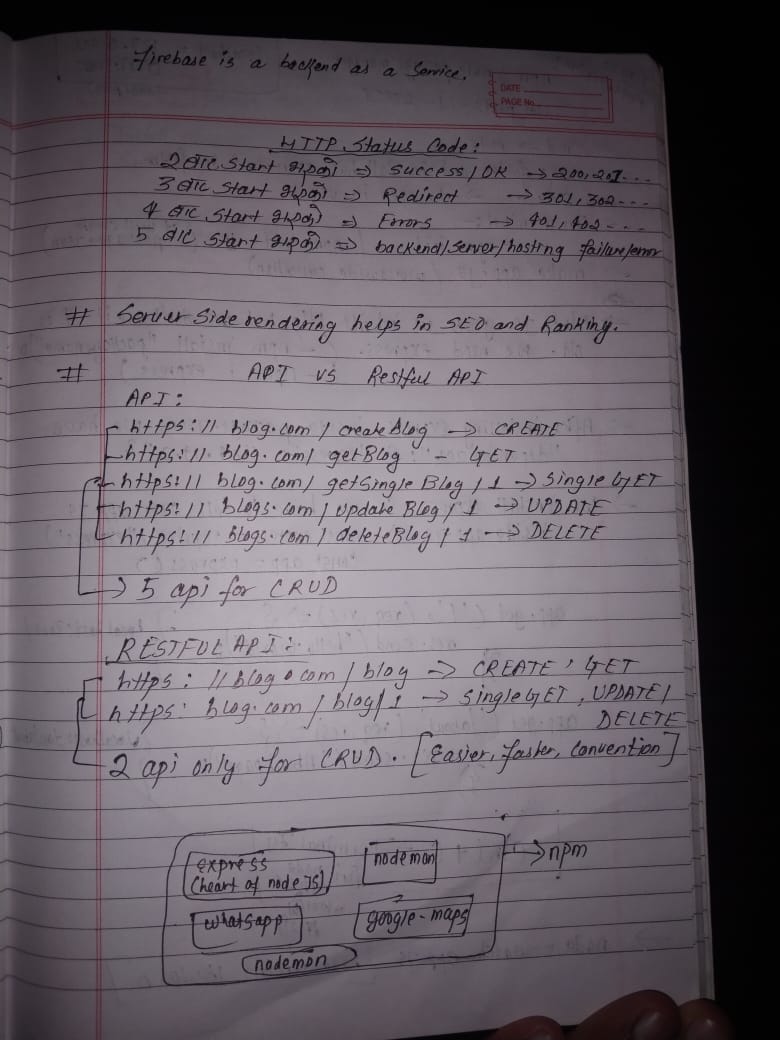 Firebase is a backend as a Service.
DATE
PAGE No.
HTTP Status Code:
2 बाट start भएको => Success/OK → 200,201...
3 बाट start भएको => Redirect → 301,302...
4 बाट start भएको => Errors → 401,402...
5 बाट start भएको => backend/server/hosting failure/error
# Server Side rendering helps in SEO and Ranking.
# API vs Restful API
API:
https://blog.com/createBlog → CREATE
https://blog.com/getBlog - GET
https://blog.com/getSingleBlog/1 → Single GET
https://blogs.com/updateBlog/1 → UPDATE
https://blogs.com/deleteBlog/1 → DELETE
→ 5 api for CRUD
RESTFUL API:
https://blog.com/blog → CREATE, GET
https: blog.com/blog/1 → Single GET, UPDATE/
DELETE
2 api only for CRUD. [Easier, faster, convention]
express
(heart of node JS)
nodemon
→ npm
whatsapp
google-maps
nodemon